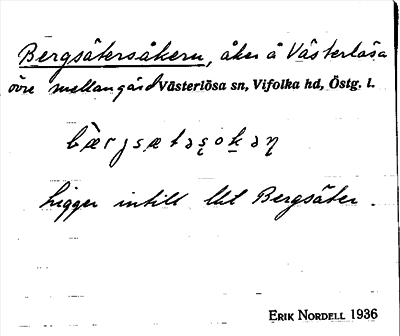 Bergsätersåkern, åker å Västerlösa
övre mellangård Västerlösa sn, Vifolka hd, Östg. l.
Ligger intill Bergsäter.
ERIK NORDELL 1936